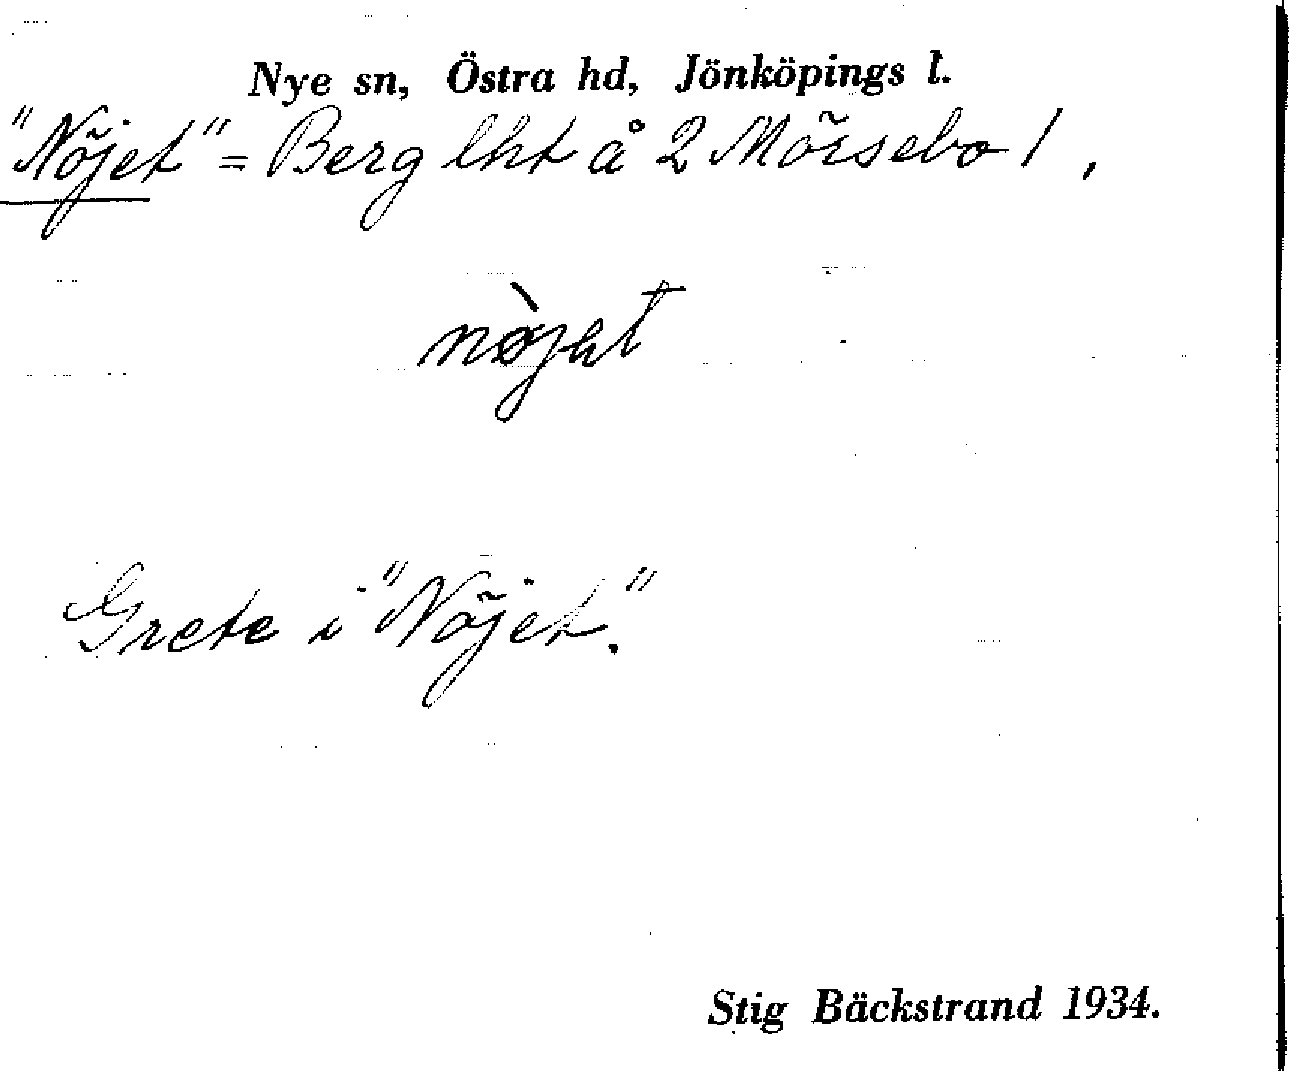 Nye sn, Östra hd, Jönköpings l.
"Nöjet" = Berg lht å 2 Mörsebo 1,
Grete i "Nöjet."
Stig Bäckstrand 1934.